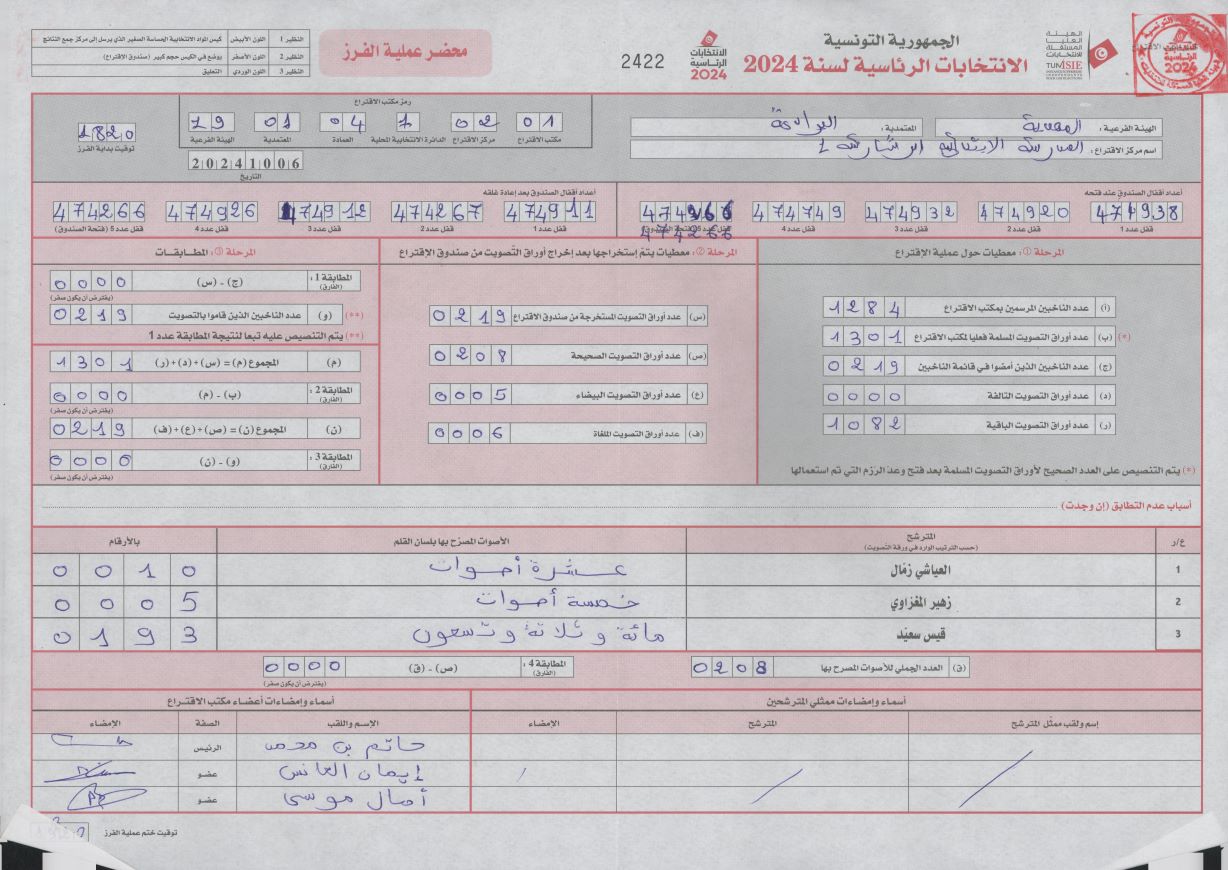 الجمهورية التونسية
الانتخابات الرئاسية لسنة 2024
الهيئة العليا المستقلة للانتخابات
TUNISIE
الانتخابات الرئاسية 2024
2422
محضر عملية الفرز
النظير 1 اللون الأبيض كيس المواد الانتخابية الحساسة الصغير الذي يرسل إلى مركز جمع النتائج
النظير 2 اللون الأصفر يوضع في الكيس حجم كبير (صندوق الاقتراع)
النظير 3 اللون الوردي التعليق
الهيئة الفرعية : المهدية
المعتمدية :
اسم مركز الاقتراع : المدرسة الابتدائية
رمز مكتب الاقتراع
01 02 1 04 01 79
مكتب الاقتراع مركز الاقتراع الدائرة الانتخابية المحلية العمادة المعتمدية الهيئة الفرعية
20241006
التاريخ
1820
توقيت بداية الفرز
أعداد أقفال الصندوق عند فتحه
474938 474920 474932 474749
قفل عدد 1 قفل عدد 2 قفل عدد 3 قفل عدد 4 قفل عدد 5 (فتحة الصندوق)
474266
أعداد أقفال الصندوق بعد إعادة غلقه
474911 474267 474912 474926 474266
قفل عدد 1 قفل عدد 2 قفل عدد 3 قفل عدد 4 قفل عدد 5 (فتحة الصندوق)
المرحلة ①: معطيات حول عملية الإقتراع
(أ) عدد الناخبين المرسمين بمكتب الاقتراع 1284
(*) (ب) عدد أوراق التصويت المسلمة فعليا لمكتب الاقتراع 1301
(ج) عدد الناخبين الذين أمضوا في قائمة الناخبين 0219
(د) عدد أوراق التصويت التالفة 0000
(ر) عدد أوراق التصويت الباقية 1082
(*) يتم التنصيص على العدد الصحيح لأوراق التصويت المسلمة بعد فتح وعد الرزم التي تم استعمالها
المرحلة ②: معطيات يتمّ إستخراجها بعد إخراج أوراق التّصويت من صندوق الإقتراع
(س) عدد أوراق التصويت المستخرجة من صندوق الاقتراع 0219
(ص) عدد أوراق التصويت الصحيحة 0208
(ع) عدد أوراق التصويت البيضاء 0005
(ف) عدد أوراق التصويت الملغاة 0006
المرحلة ③: المطابقات
المطابقة 1 : (الفارق) (ج) - (س) 0000
(يفترض أن يكون صفر)
(**) (و) عدد الناخبين الذين قاموا بالتصويت 0219
(**) يتم التنصيص عليه تبعا لنتيجة المطابقة عدد 1
(م) المجموع (م) = (س) + (د) + (ر) 1301
المطابقة 2 : (الفارق) (ب) - (م) 0000
(يفترض أن يكون صفر)
(ن) المجموع (ن) = (ص) + (ع) + (ف) 0219
المطابقة 3 : (الفارق) (و) - (ن) 0000
(يفترض أن يكون صفر)
أسباب عدم التطابق (إن وجدت)
ع/ر المترشح الأصوات المصرّح بها بلسان القلم بالأرقام
(حسب الترتيب الوارد في ورقة التصويت)
1 العياشي زمّال عشرة أصوات 0010
2 زهير المغزاوي خمسة أصوات 0005
3 قيس سعيّد مائة وثلاثة وتسعون 0193
(ق) العدد الجملي للأصوات المصرح بها 0208
المطابقة 4 : (الفارق) (ص) - (ق) 0000
(يفترض أن يكون صفر)
أسماء وإمضاءات ممثلي المترشحين
إسم ولقب ممثل المترشح المترشح الامضاء
أسماء وإمضاءات أعضاء مكتب الاقتراع
الإسم واللقب الصفة الإمضاء
حاتم بن محمد الرئيس
إيمان العانس عضو
أمال موسى عضو
توقيت ختم عملية الفرز